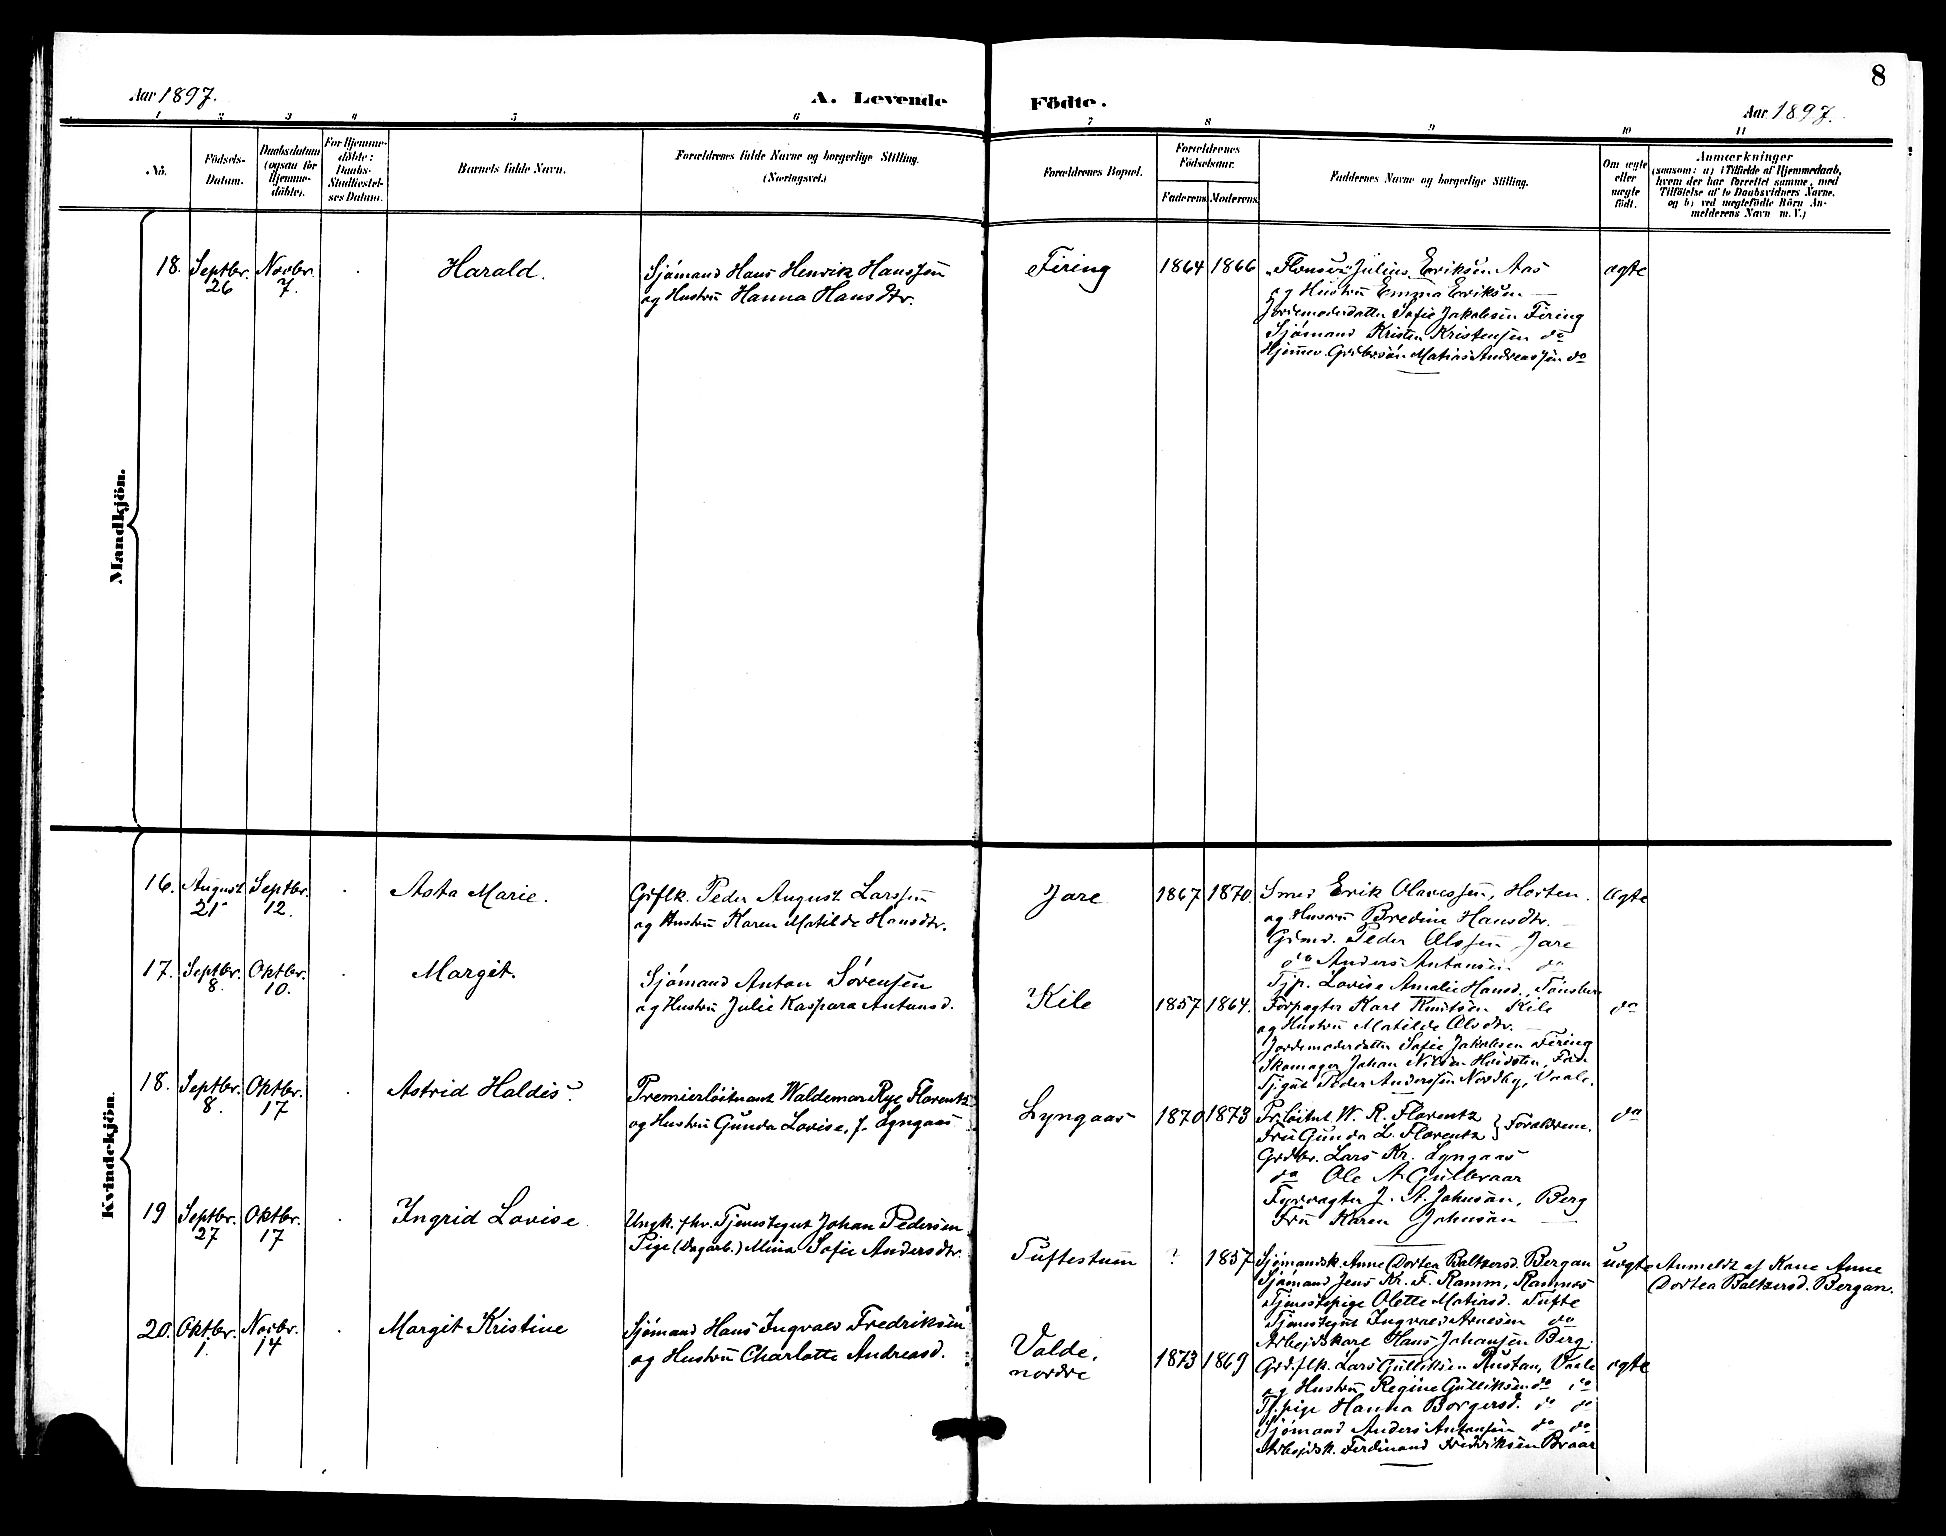 8
Aar 1897.
A. Levende
Födte.
Aar 1897.
1
2
3
4
5
6
7
8
9
10
11
No.
Födsels-
Datum.
Daabsdatum
(ogsaa for
Hjemme-
döbte).
For Hjemme-
döbte:
Daabs-
Stadfæstel-
ses Datum.
Barnets fulde Navn.
Forældrenes fulde Navne og borgerlige Stilling.
(Næringsvei.)
Forældrenes Bopæl.
Forældrenes
Födselsaar.
Faderens
Moderens
Faddernes Navne og borgerlige Stilling.
Om ægte
eller
uægte
födt.
Anmærkninger
(saasom: a) i Tilfælde af Hjemmedaab,
hvem der har forrettet samme, med
Tilföielse af to Daabsvidners Navne.
og b) ved uægtefödte Börn An-
melderens Navn m. V.)
Mandkjön.
18.
Septbr.
26
Novbr.
7.
Harald.
Sjómand Hans Henrik Hanssen
og Hustru Hanna Hansdtr.
Firing
1864
1866
Julius Eriksen Aas
og Hustru Emma Eriksen —
Jordemoderdatter Sofie Jakobsen Firing
Sjómand Kristen Kristensen do
Hjemmev. Grdbrsön Matias Andreassen do
ægte
Kvindekjön.
16.
August
21
Septbr.
12.
Asta Marie.
Grflk. Peder August Larssen
og Hustru Karen Matilde Hansdtr.
Jare
1867
1870
Smed Erik Olavessen, Horten.
og Hustru Bredine Hansdtr. —
Grmd. Peder Olssen Jare
do Anders Antonsen do
Tjp. Lovise Amalie Hansd., Tönsberg
ægte
17.
Septbr.
8.
Oktbr.
10.
Margit.
Sjómand Anton Sörensen
og Hustru Julie Kaspara Antonsd.
Kile
1857
1864.
Forpagter Karl Knutsen Kile
og Hustru Matilde Olsdtr. —
Jordemoderdatter Sofie Jakobsen Firing
Skomager Johan Nilsen
Tjgut Peder Anderssen Nordby, Vaale.
do
18.
Septbr.
8.
Oktbr.
17
Astrid Haldis.
Premierlöitnant Waldemar Rye Florentz
og Hustru Gunda Lovise, f. Lyngaas
Lyngaas
1870
1873
Pr.löitnt W. R. Florentz
Fru Gunda L. Florentz } Forældrene.
Grdbr. Lars Kr. Lyngaas
do Ole A. Gulbraar
Fyrvogter J. A. Johnsen, Berg
Fru Karen Johnsen —
do
19
Septbr.
27
Oktbr.
17
Ingrid Lovise
Ungk. fhv. Tjenestegut Johan Pedersen
Pige (Dagarb.) Mina Sofie Andersdtr.
Tuftestuen
?
1857
Sjömandsk. Anne Dortea Baltzersd. Bergan
Sjómand Jens Kr. F. Ramm, Ramnes
Tjenestepige Olette Matiasd. Tufte
Tjenestegut Ingvald Arnesen do
Arbejdskarl Hans Johansen Berg.
uægte
Anmeldt af Kone Anne
Dortea Baltzersd. Bergan.
20.
Oktbr.
1.
Novbr.
14
Margit Kristine
Sjómand Hans Ingvald Fredriksen
og Hustru Charlotte Andreasd.
Valde,
nordre
1873
1869
Grd.flk. Lars Gulliksen Rustan, Vaale
og Hustru Regine Gulliksen do do
Tj.pige Hanna Borgersd. do do
Sjómand Anders Antonsen do do
Arbejdsk. Ferdinand Fredriksen Braar
ægte